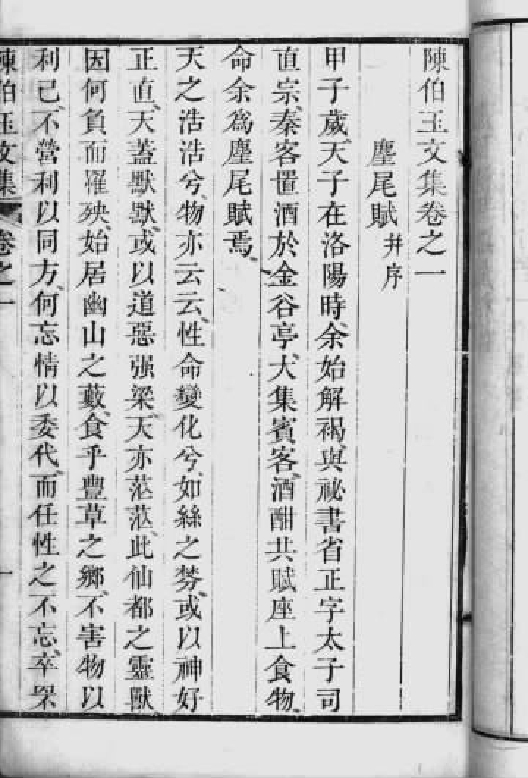 陳伯玉文集卷之一
麈尾賦 幷序
甲子歲天子在洛陽時余始解褐與祕書省正字太子司
直宗秦客置酒於金谷亭大集賓客酒酣共賦座上食物
命余爲麈尾賦焉
天之浩浩兮物亦云云性命變化兮如絲之棼或以神好
正直天蓋默默或以道惡强梁天亦茫茫此仙都之靈獸
因何負而罹殃始居幽山之藪食乎豐草之鄉不害物以
利己不營利以同方何忘情以委代而任性之不忘卒罘
陳伯玉文集 卷之一 一